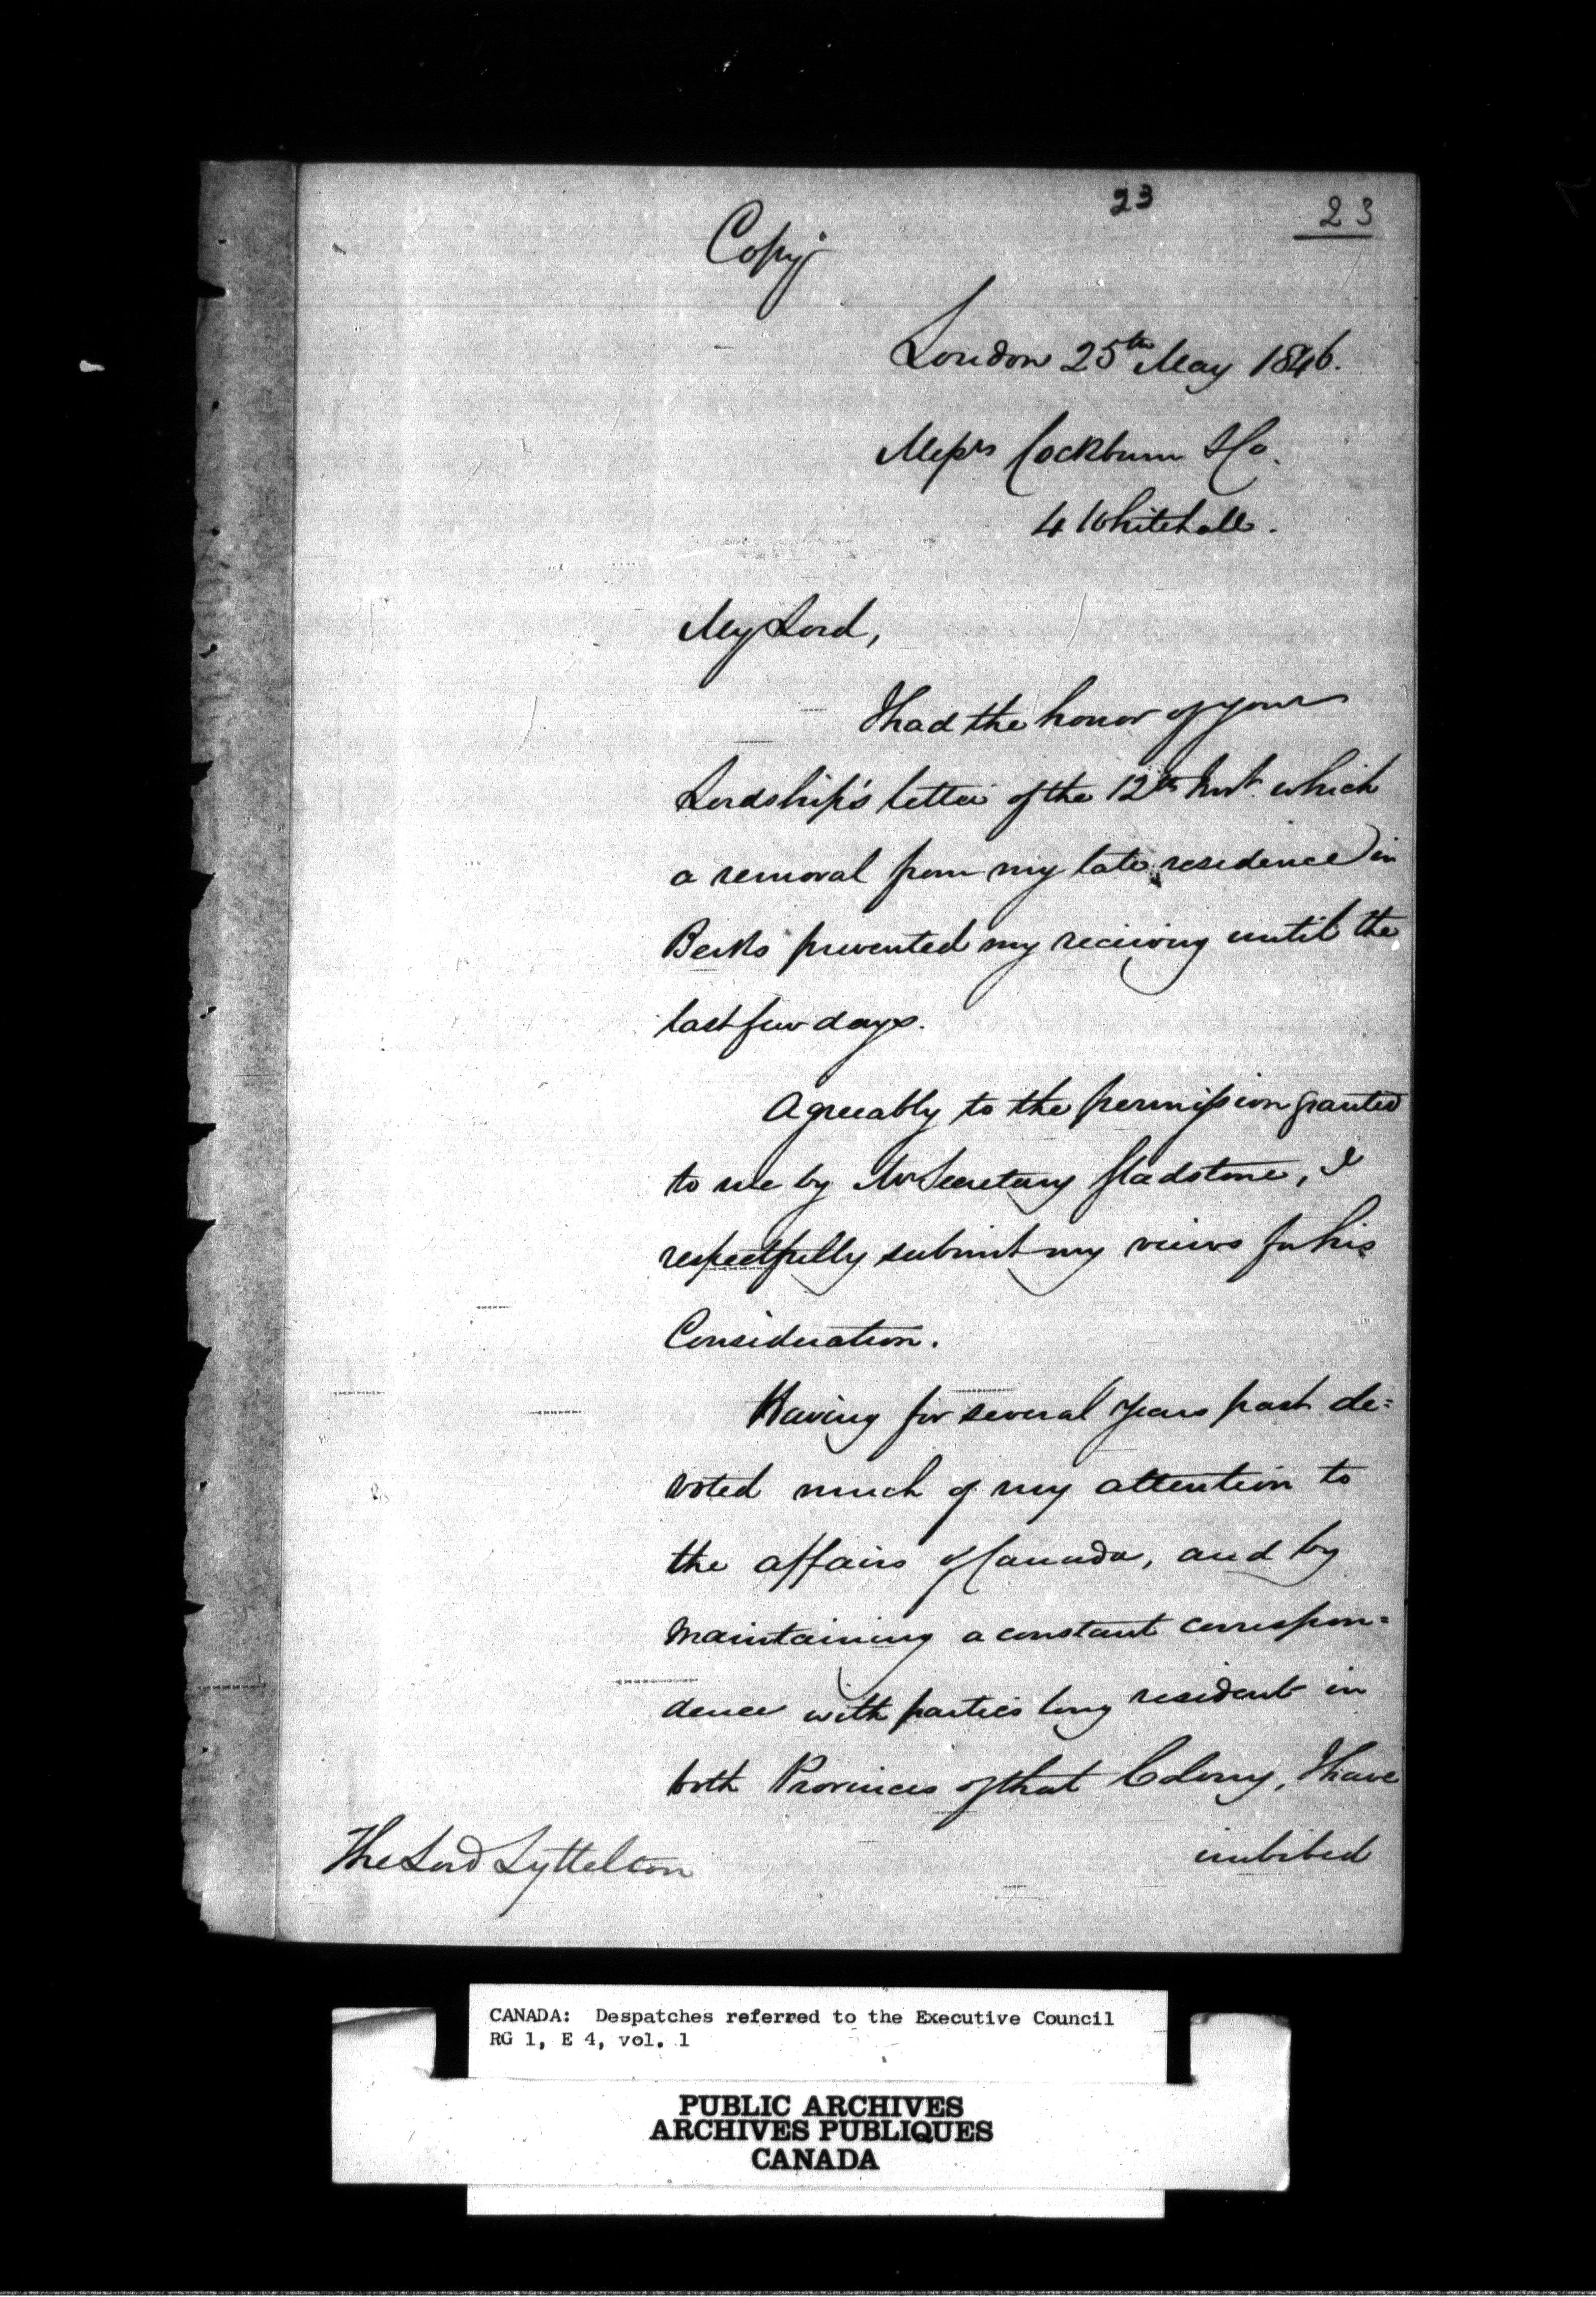 23
23
Copy
London 25th May 1846.
Messrs Cockburn & Co.
4 Whitehall.
My Lord,
I had the honor of your
Lordship's letter of the 12th Inst. which
a removal from my late residence in
Berks prevented my receiving until the
last few days.
Agreeably to the permission granted
to me by Mr Secretary Gladstone, I
respectfully submit my views for his
Consideration.
Having for several years past de=
voted much of my attention to
the affairs of Canada, and by
maintaining a constant correspon=
dence with parties long resident in
both Provinces of that Colony, I have
imbibed
The Lord Lyttelton
CANADA: Despatches referred to the Executive Council
RG 1, E 4, vol. 1
PUBLIC ARCHIVES
ARCHIVES PUBLIQUES
CANADA